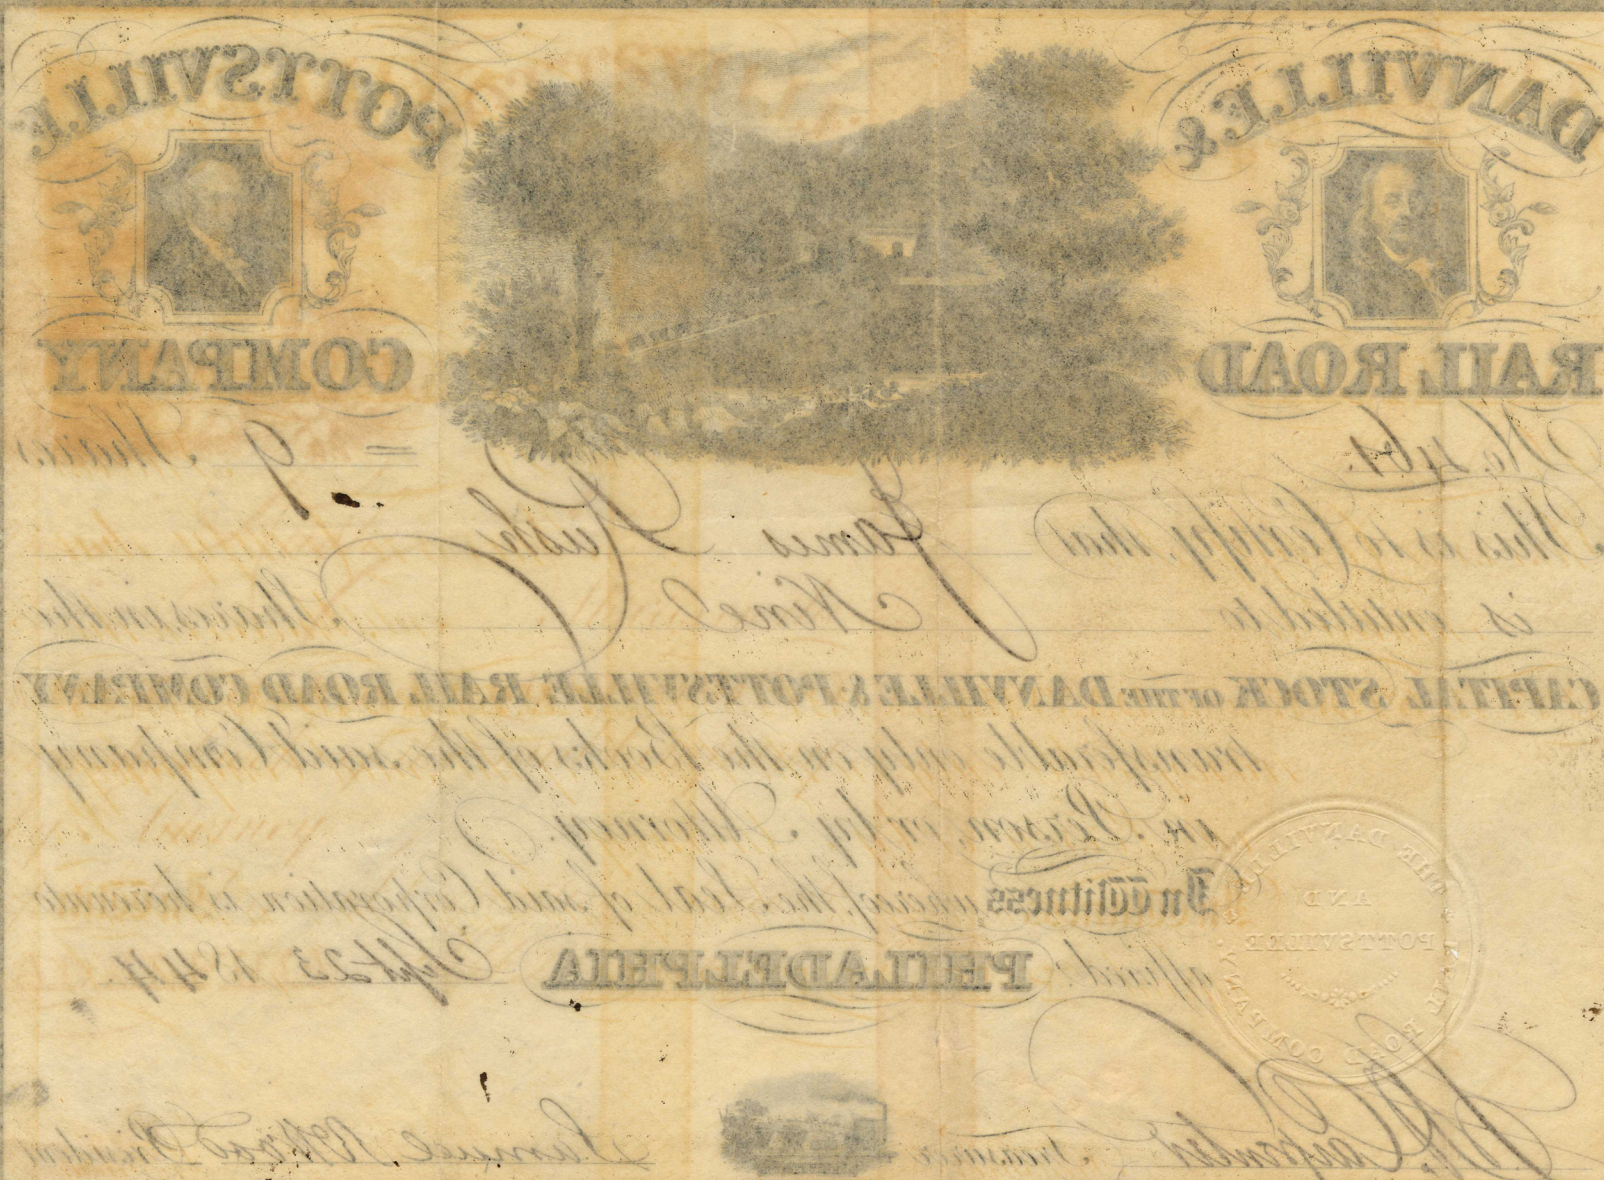 DANVILLE & POTTSVILLE
RAIL ROAD COMPANY
No. 461. 9 = Shares
This is to Certify, that James Rush
is entitled to Nine Shares in the
CAPITAL STOCK OF THE DANVILLE & POTTSVILLE RAIL ROAD COMPANY
transferable only on the Books of the said Company
in Person, or by Attorney.
In Witness whereof, the Seal of said Corporation is hereunto
affixed. PHILADELPHIA Sept 23 1844.
THE DANVILLE
AND
POTTSVILLE
RAIL ROAD COMPANY
Carpenter Treasurer Samuel R Wood President